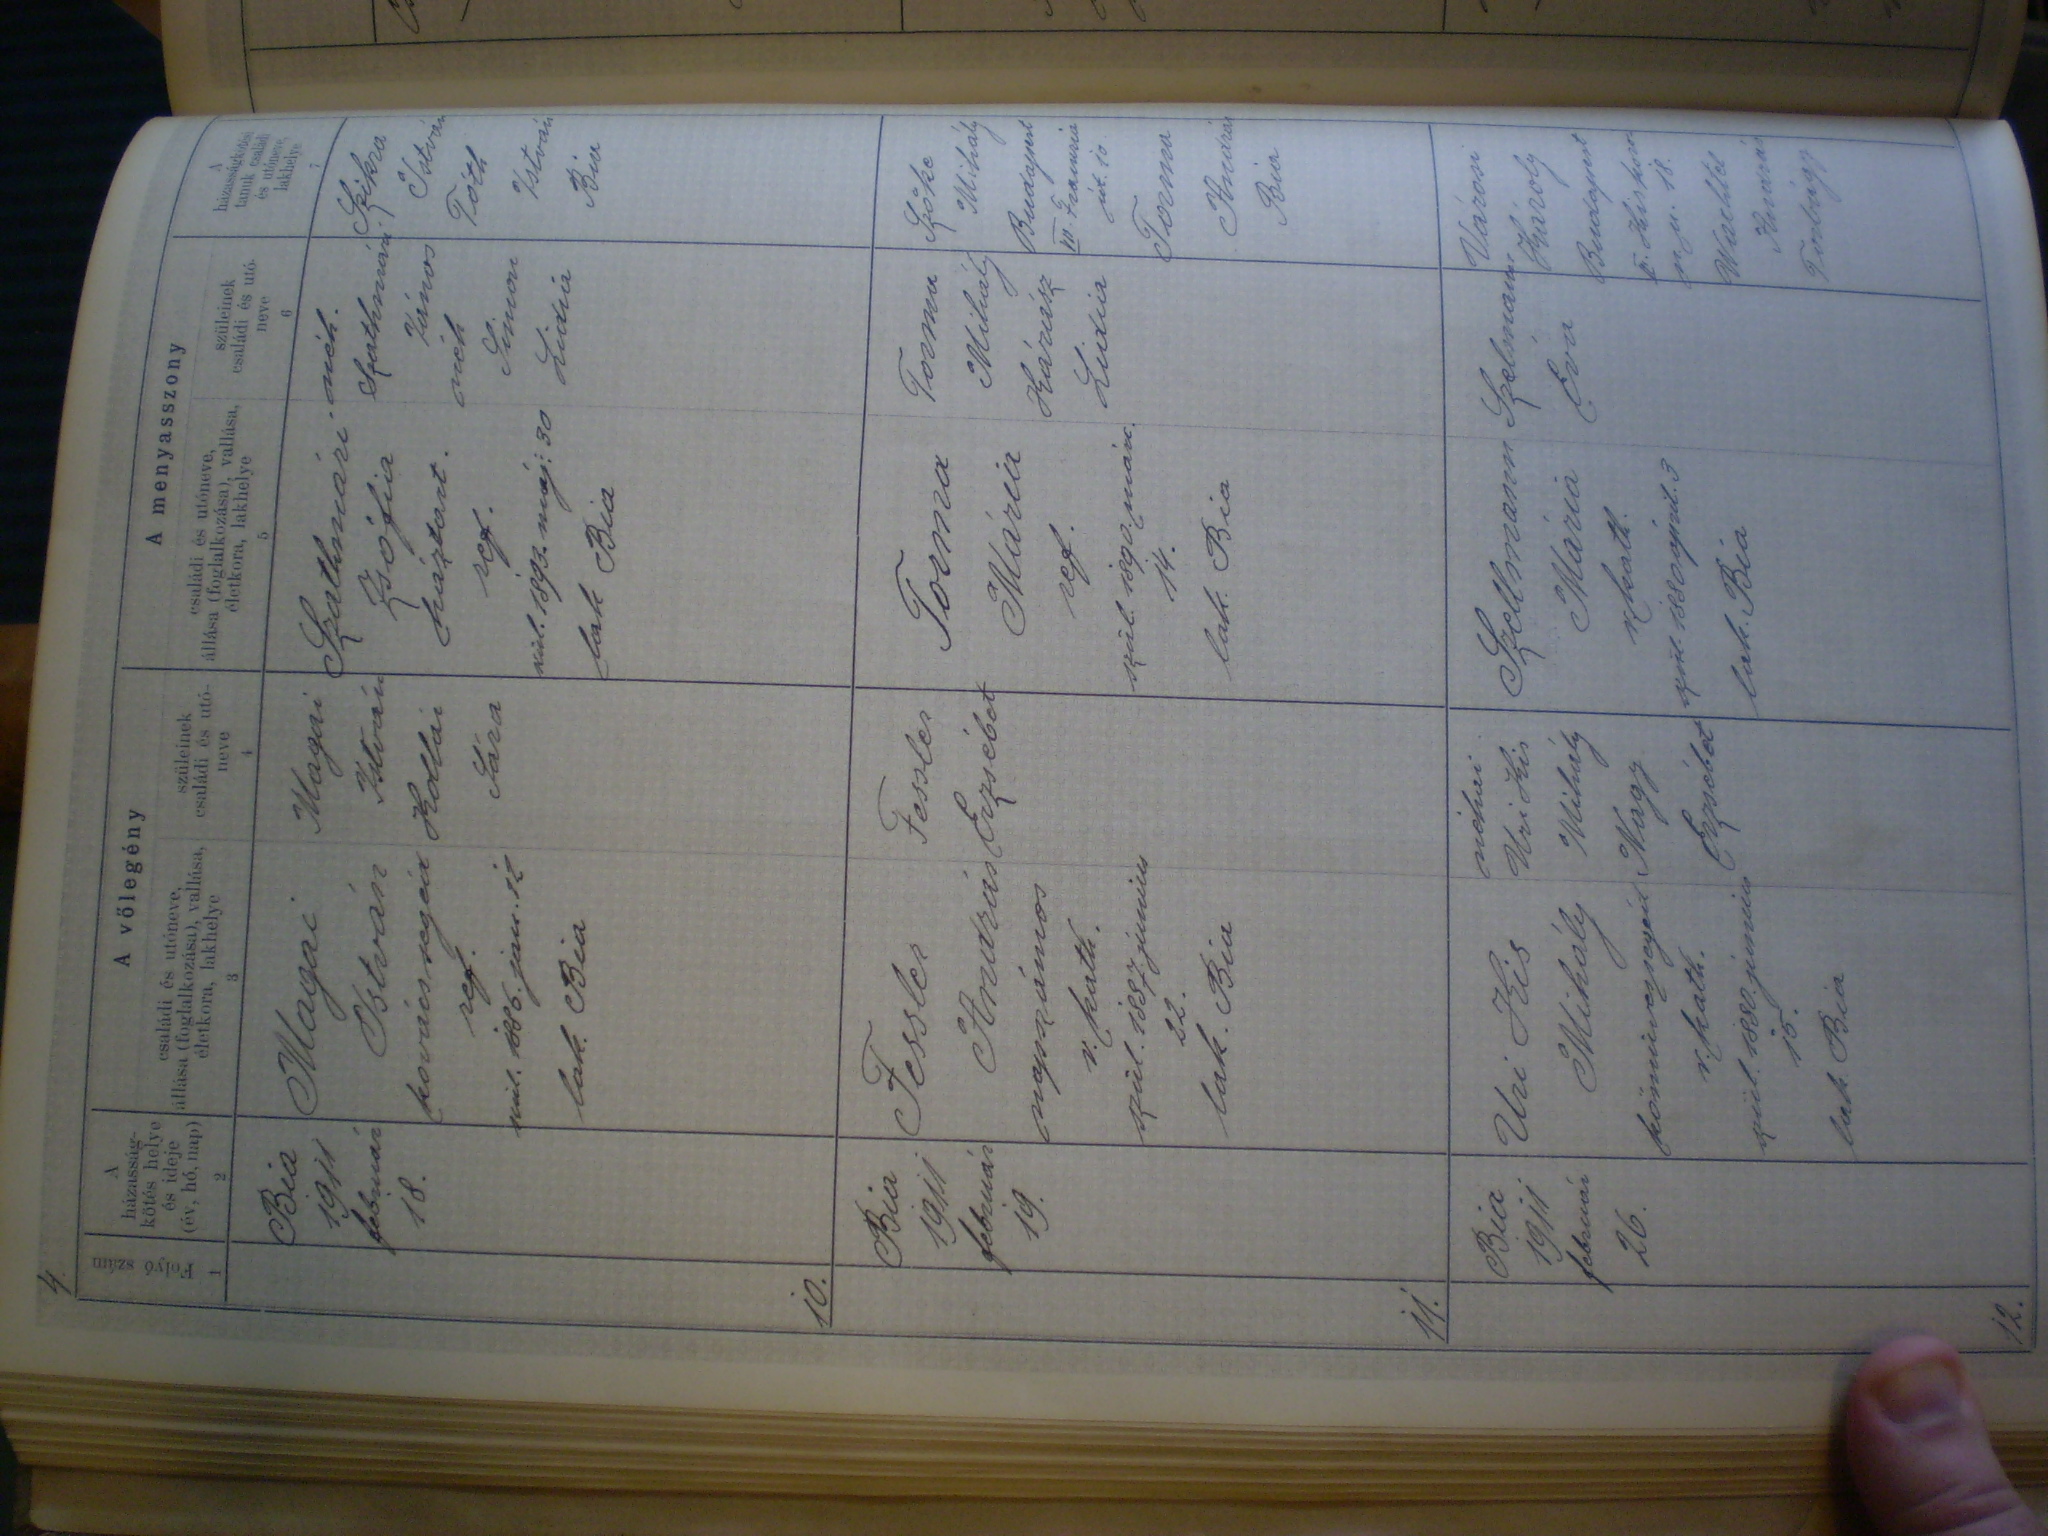 4.
A völegény
A menyasszony
Folyó szám
A
házasság-
kötés helye
és ideje
(év, hó, nap)
családi és utóneve,
állása (foglalkozása), vallása,
életkora, lakhelye
szüleinek
családi és utó-
neve
családi és utóneve,
állása (foglalkozása), vallása,
életkora, lakhelye
szüleinek
családi és utó-
neve
A
házasságkötési
tanuk családi
és utóneve,
lakhelye
1
2
3
4
5
6
7
10.
Bia
1911
február
18.
Magai
István
kovácssegéd
ref.
szül. 1886. jan. 12
lak. Bia
Magai
István
Kollai
Sára
Szathmári
Zsófia
háztart.
ref.
szül. 1893. máj. 30
lak Bia
néh.
Szathmári
János
néh
Simon
Lidia
Szikra
István
Tóth
István
Bia
11.
Bia
1911
február
19.
Fessler
András
napszámos
r. kath.
szül. 1887 június
22.
lak. Bia
Fessler
Erzsébet
Torma
Mária
ref.
szül. 1890. márc.
14.
lak. Bia
Torma
Mihály
Kárász
Lidia
Szőke
Mihály
Budapest
út. 10
Torma
András
Bia
12.
Bia
1911
február
26.
Uri Kis
Mihály
kőművessegéd
r. kath.
szül. 1880. június
15.
lak. Bia
néhai
Uri Kis
Mihály
Nagy
Erzsébet
Szellmann
Mária
r. kath.
szül. 1880 april. 3
lak. Bia
Szelmann
Éva
Városi
Károly
Budapest
u. 18.
Wachtel
Torbágy